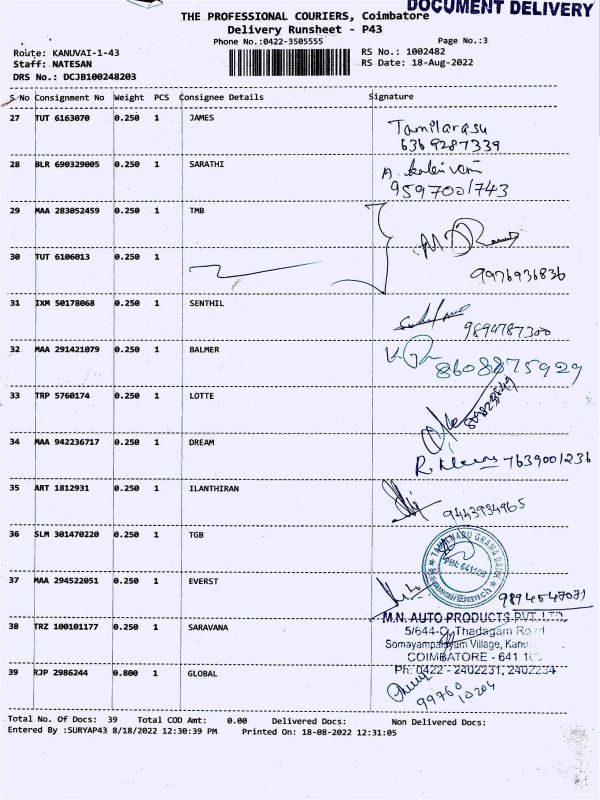 DOCUMENT DELIVERY
THE PROFESSIONAL COURIERS, Coimbatore
Delivery Runsheet - P43
Phone No.:0422-3505555
Page No.:3
Route: KANUVAI-1-43
RS No.: 1002482
Staff: NATESAN
RS Date: 18-Aug-2022
DRS No.: DCJB100248203
S No Consignment No Weight PCS Consignee Details Signature
27 TUT 6163070 0.250 1 JAMES
Tamilarasu
6369287339
28 BLR 690329005 0.250 1 SARATHI
9597001743
29 MAA 283052459 0.250 1 TMB
30 TUT 6106013 0.250 1
9976936836
31 IXM 50178068 0.250 1 SENTHIL
9894787300
32 MAA 291421079 0.250 1 BALMER
8608875929
33 TRP 5760174 0.250 1 LOTTE
34 MAA 942236717 0.250 1 DREAM
7639001236
35 ART 1812931 0.250 1 ILANTHIRAN
9443934965
36 SLM 301470220 0.250 1 TGB
TAMIL NADU GRAMA BANK
37 MAA 294522051 0.250 1 EVERST
9894547071
M.N. AUTO PRODUCTS PVT. LTD
38 TRZ 100101177 0.250 1 SARAVANA
5/644-C, Thadagam Road
Somayampalayam Village,
COIMBATORE - 641
39 RJP 2986244 0.800 1 GLOBAL
Ph: 0422 - 2402231, 2402234
99760
10204
Total No. Of Docs: 39 Total COD Amt: 0.00 Delivered Docs: Non Delivered Docs:
Entered By :SURYAP43 8/18/2022 12:30:39 PM Printed On: 18-08-2022 12:31:05